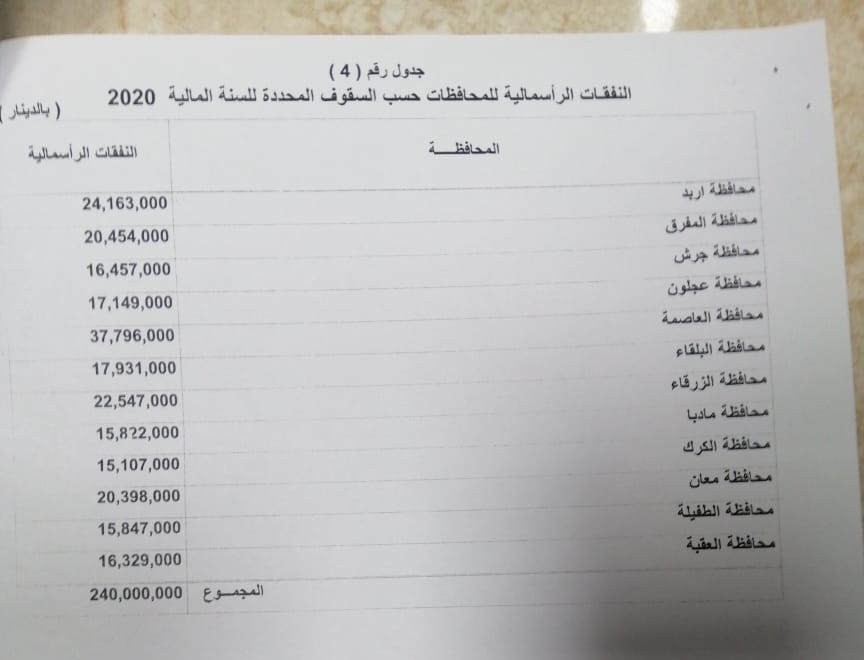 جدول رقم ( 4 )
النفقات الرأسمالية للمحافظات حسب السقوف المحددة للسنة المالية 2020
( بالدينار )
المحافظـــة النفقات الرأسمالية
محافظة اربد 24,163,000
محافظة المفرق 20,454,000
محافظة جرش 16,457,000
محافظة عجلون 17,149,000
محافظة العاصمة 37,796,000
محافظة البلقاء 17,931,000
محافظة الزرقاء 22,547,000
محافظة مادبا 15,822,000
محافظة الكرك 15,107,000
محافظة معان 20,398,000
محافظة الطفيلة 15,847,000
محافظة العقبة 16,329,000
المجمــوع 240,000,000